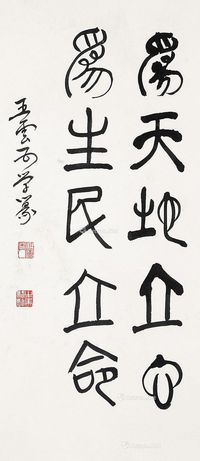 為天地立心
為生民立命
王雲可学篆